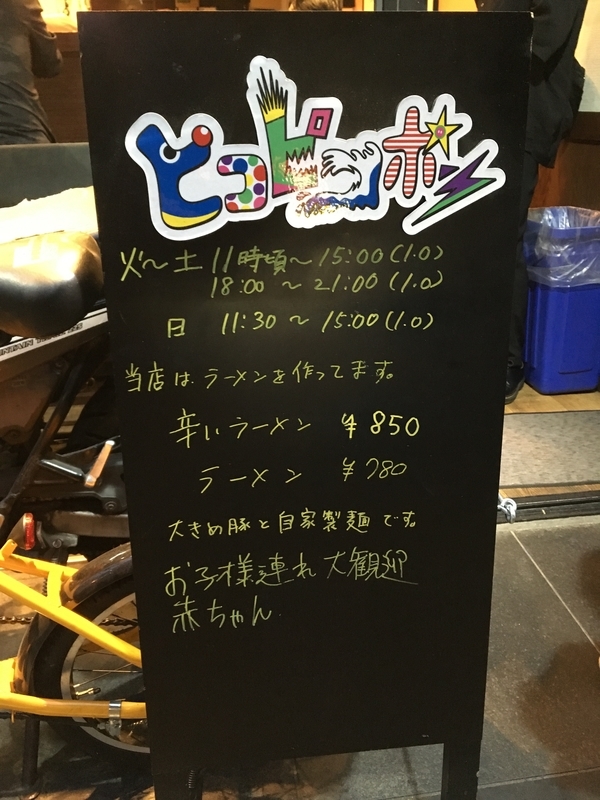 ピコピコポン
火〜土 11時頃〜15:00(l.o)
18:00 〜 21:00 (l.o)
日 11:30 〜 15:00(l.o)
当店は、ラーメンを作ってます。
辛いラーメン ¥850
ラーメン ¥780
大きめ豚と自家製麺です。
お子様連れ大観迎
赤ちゃん